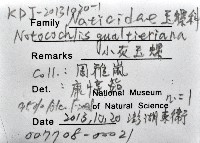 KDI-20131920-1
Family Naticidae 玉螺科
Notocochlis gualtieriana
Remarks 小灰玉螺
Coll.: 周雅嵐
Det.:
National Museum
of Natural Science
n.=1
Date 2013.10.20 澎湖東衛
007708-00021